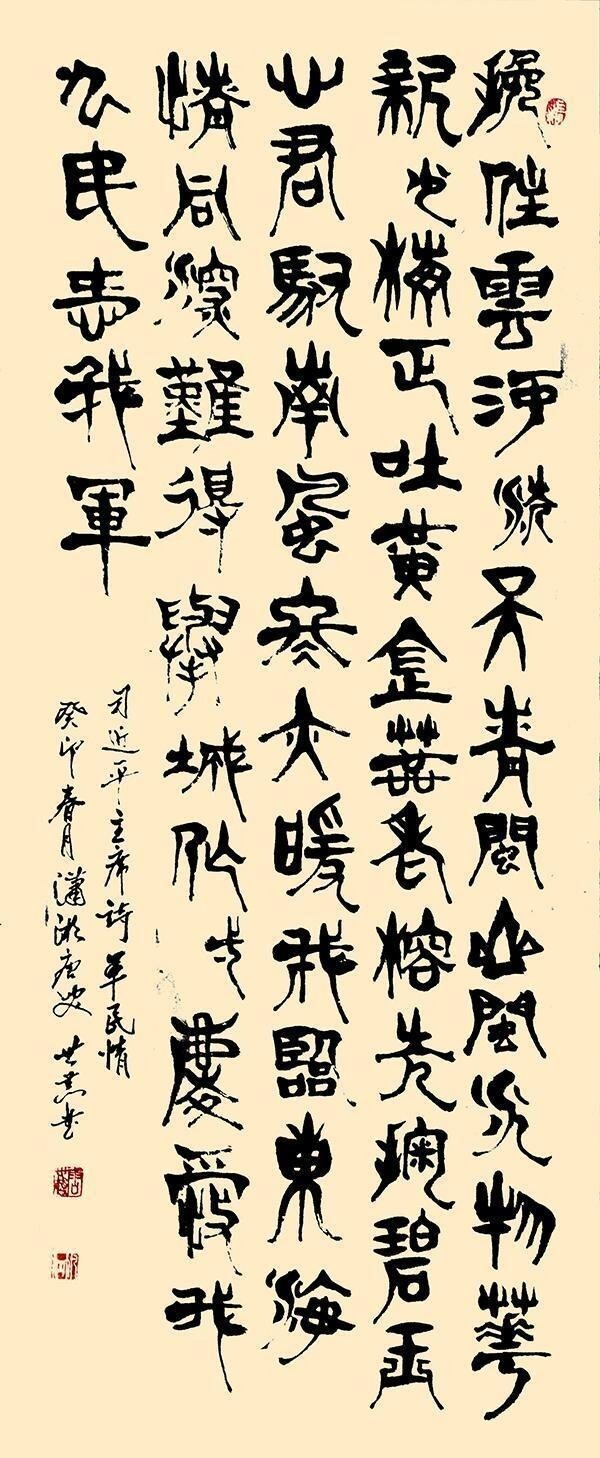 挽住雲河洗天青閩山閩水物華
新小梅正吐黄金蕊老榕先掬碧玉
心君馭南風冬亦暖我臨東海
情同深難得舉城作一慶愛我
人民愛我軍
习近平主席詩军民情
癸卯春月瀟湘唐